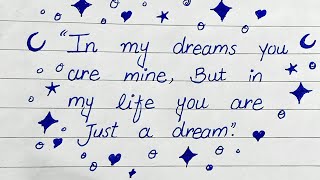 "In my dreams you
are mine, But in
my life you are
Just a dream."